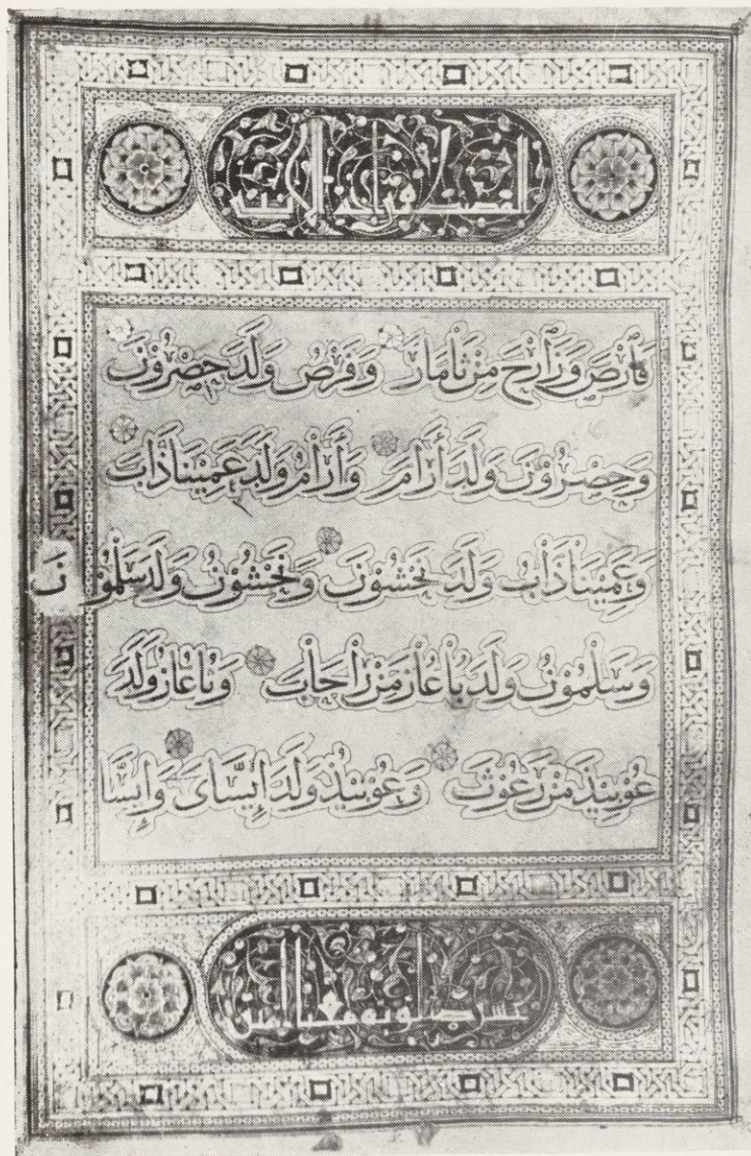 فَارَصَ وَزَارَحَ مِنْ ثَامَارَ وَفَرَصُ وَلَدَ حِصْرُوْنَ
وَحِصْرُوْنَ وَلَدَ أَرَامَ وَأَرَامُ وَلَدَ عَمِيْنَاذَابَ
وَعَمِيْنَاذَابُ وَلَدَ نَخْشُوْنَ وَنَخْشُوْنُ وَلَدَ سَلْمُوْنَ
وَسَلْمُوْنُ وَلَدَ بُاعُازَ مِنْ رَاحَابَ وَبُاعَازُ وَلَدَ
عُوْبِيْذَ مِنْ رَعُوْثَ وَعُوْبِيْذُ وَلَدَ إِيْسَّاىَ وَإِيسَّا